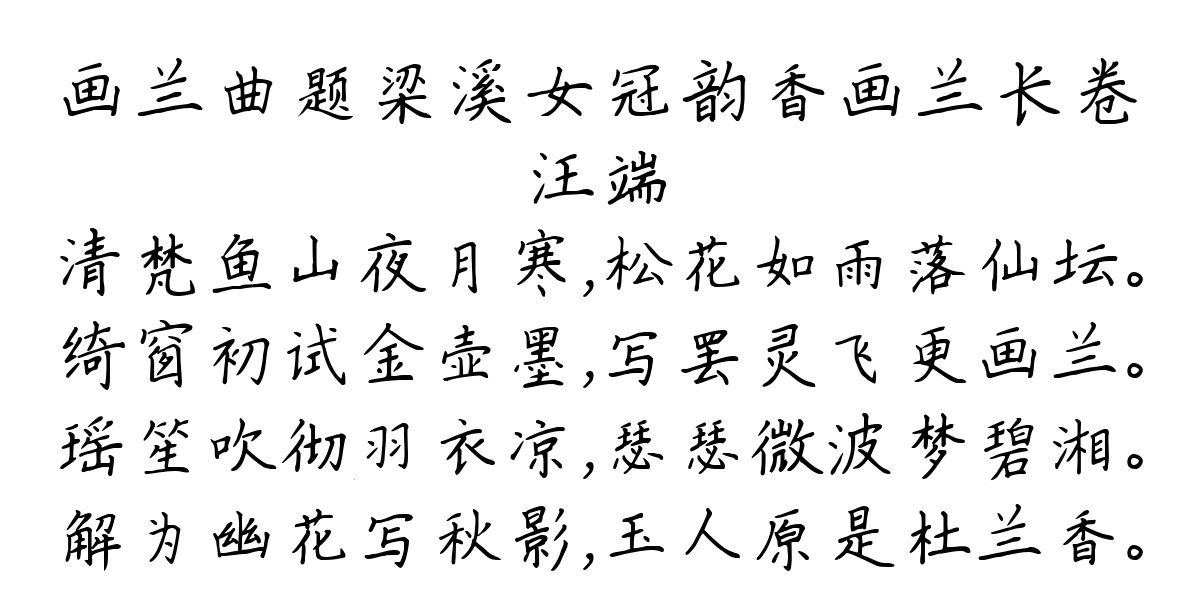 画兰曲题梁溪女冠韵香画兰长卷
汪端
清梵鱼山夜月寒,松花如雨落仙坛。
绮窗初试金壶墨,写罢灵飞更画兰。
瑶笙吹彻羽衣凉,瑟瑟微波梦碧湘。
解为幽花写秋影,玉人原是杜兰香。